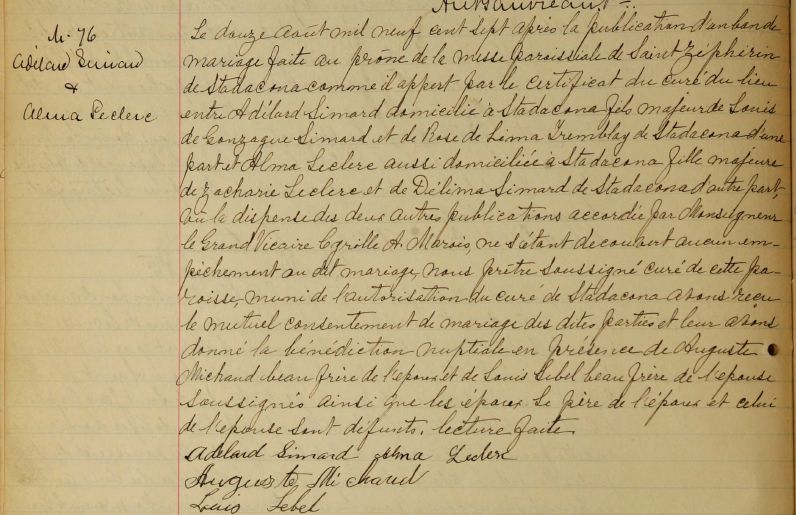 M. 76
Adélard Simard
&
Alma Leclerc
Le douze Août mil neuf cent sept après la publication d'un ban de
mariage faite au prône de la messe paroissiale de Saint Zéphirin
de Stadacona comme il appert par le certificat du curé du lieu
entre Adélard Simard domicilié à Stadacona fils majeur de Louis
de Gonzague Simard et de Rose de Lima Tremblay de Stadacona d'une
part et Alma Leclerc aussi domiciliée à Stadacona fille majeure
de Zacharie Leclerc et de Délima Simard de Stadacona d'autre part,
vu la dispense des deux autres publications accordée par Monseigneur
le Grand Vicaire Cyrille A. Marois, ne s'étant découvert aucun em-
pêchement au dit mariage, nous prêtre soussigné curé de cette pa-
roisse, muni de l'autorisation du curé de Stadacona avons reçu
le mutuel consentement de mariage des dites parties et leur avons
donné la bénédiction nuptiale en présence de Auguste
Michaud beau frère de l'époux et de Louis Lebel beau frère de l'épouse
soussignés ainsi que les époux. Le père de l'époux et celui
de l'épouse sont défunts. lecture faite
Adélard Simard Alma Leclerc
Auguste Michaud
Louis Lebel